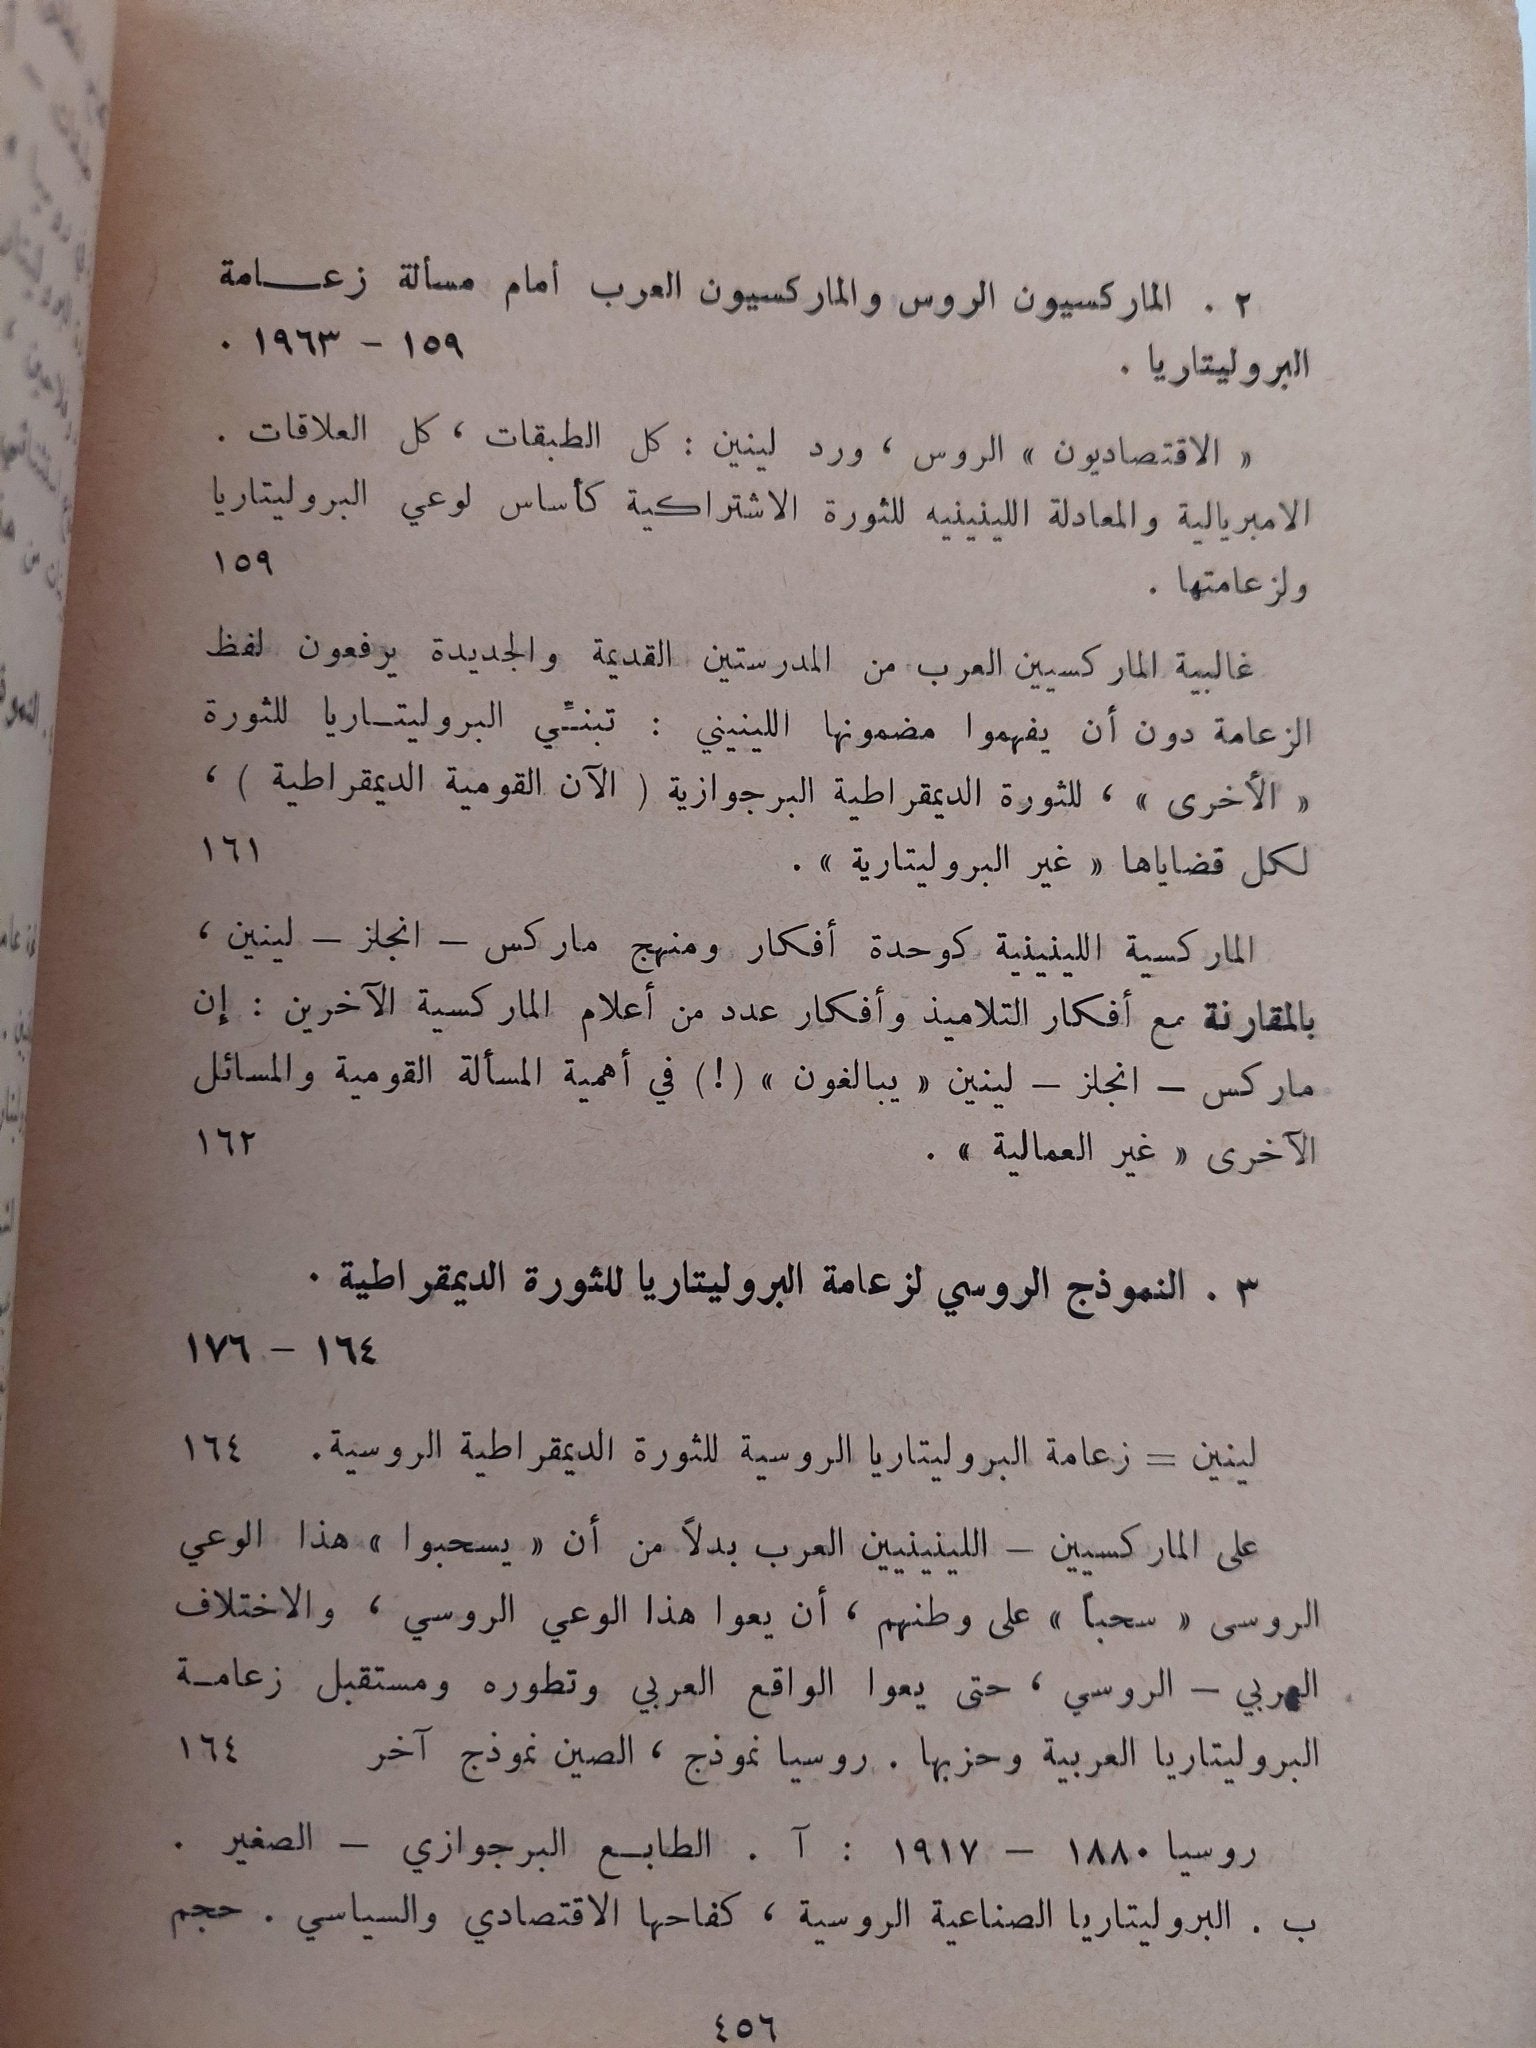 ٢ . الماركسيون الروس والماركسيون العرب أمام مسألة زعـــامة
البروليتاريا . ١٥٩ – ١٩٦٣ .
« الاقتصاديون » الروس ، ورد لينين : كل الطبقات ، كل العلاقات .
الامبريالية والمعادلة اللينينيه للثورة الاشتراكية كأساس لوعي البروليتاريا
ولزعامتها . ١٥٩
غالبية الماركسيين العرب من المدرستين القديمة والجديدة يرفعون لفظ
الزعامة دون أن يفهموا مضمونها اللينيني : تبنـّي البروليتـاريا للثورة
« الأخرى » ، للثورة الديمقراطية البرجوازية ( الآن القومية الديمقراطية ) ،
لكل قضاياها « غير البروليتارية » . ١٦١
الماركسية اللينينية كوحدة أفكار ومنهج ماركس – انجلز – لينين ،
بالمقارنة مع أفكار التلاميذ وأفكار عدد من أعلام الماركسية الآخرين : إن
ماركس – انجلز – لينين « يبالغون » (!) في أهمية المسألة القومية والمسائل
الآخرى « غير العمالية » . ١٦٢
٣ . النموذج الروسي لزعامة البروليتاريا للثورة الديمقراطية .
١٦٤ – ١٧٦
لينين = زعامة البروليتاريا الروسية للثورة الديمقراطية الروسية. ١٦٤
على الماركسيين – اللينينيين العرب بدلاً من أن « يسحبوا » هذا الوعي
الروسى « سحباً » على وطنهم ، أن يعوا هذا الوعي الروسي ، والاختلاف
العربي – الروسي ، حتى يعوا الواقع العربي وتطوره ومستقبل زعامـة
البروليتاريا العربية وحزبها . روسيا نموذج ، الصين نموذج آخر ١٦٤
روسيا ١٨٨٠ – ١٩١٧ : آ . الطابـع البرجوازي – الصغير .
ب . البروليتاريا الصناعية الروسية ، كفاحها الاقتصادي والسياسي . حجم
٤٥٦